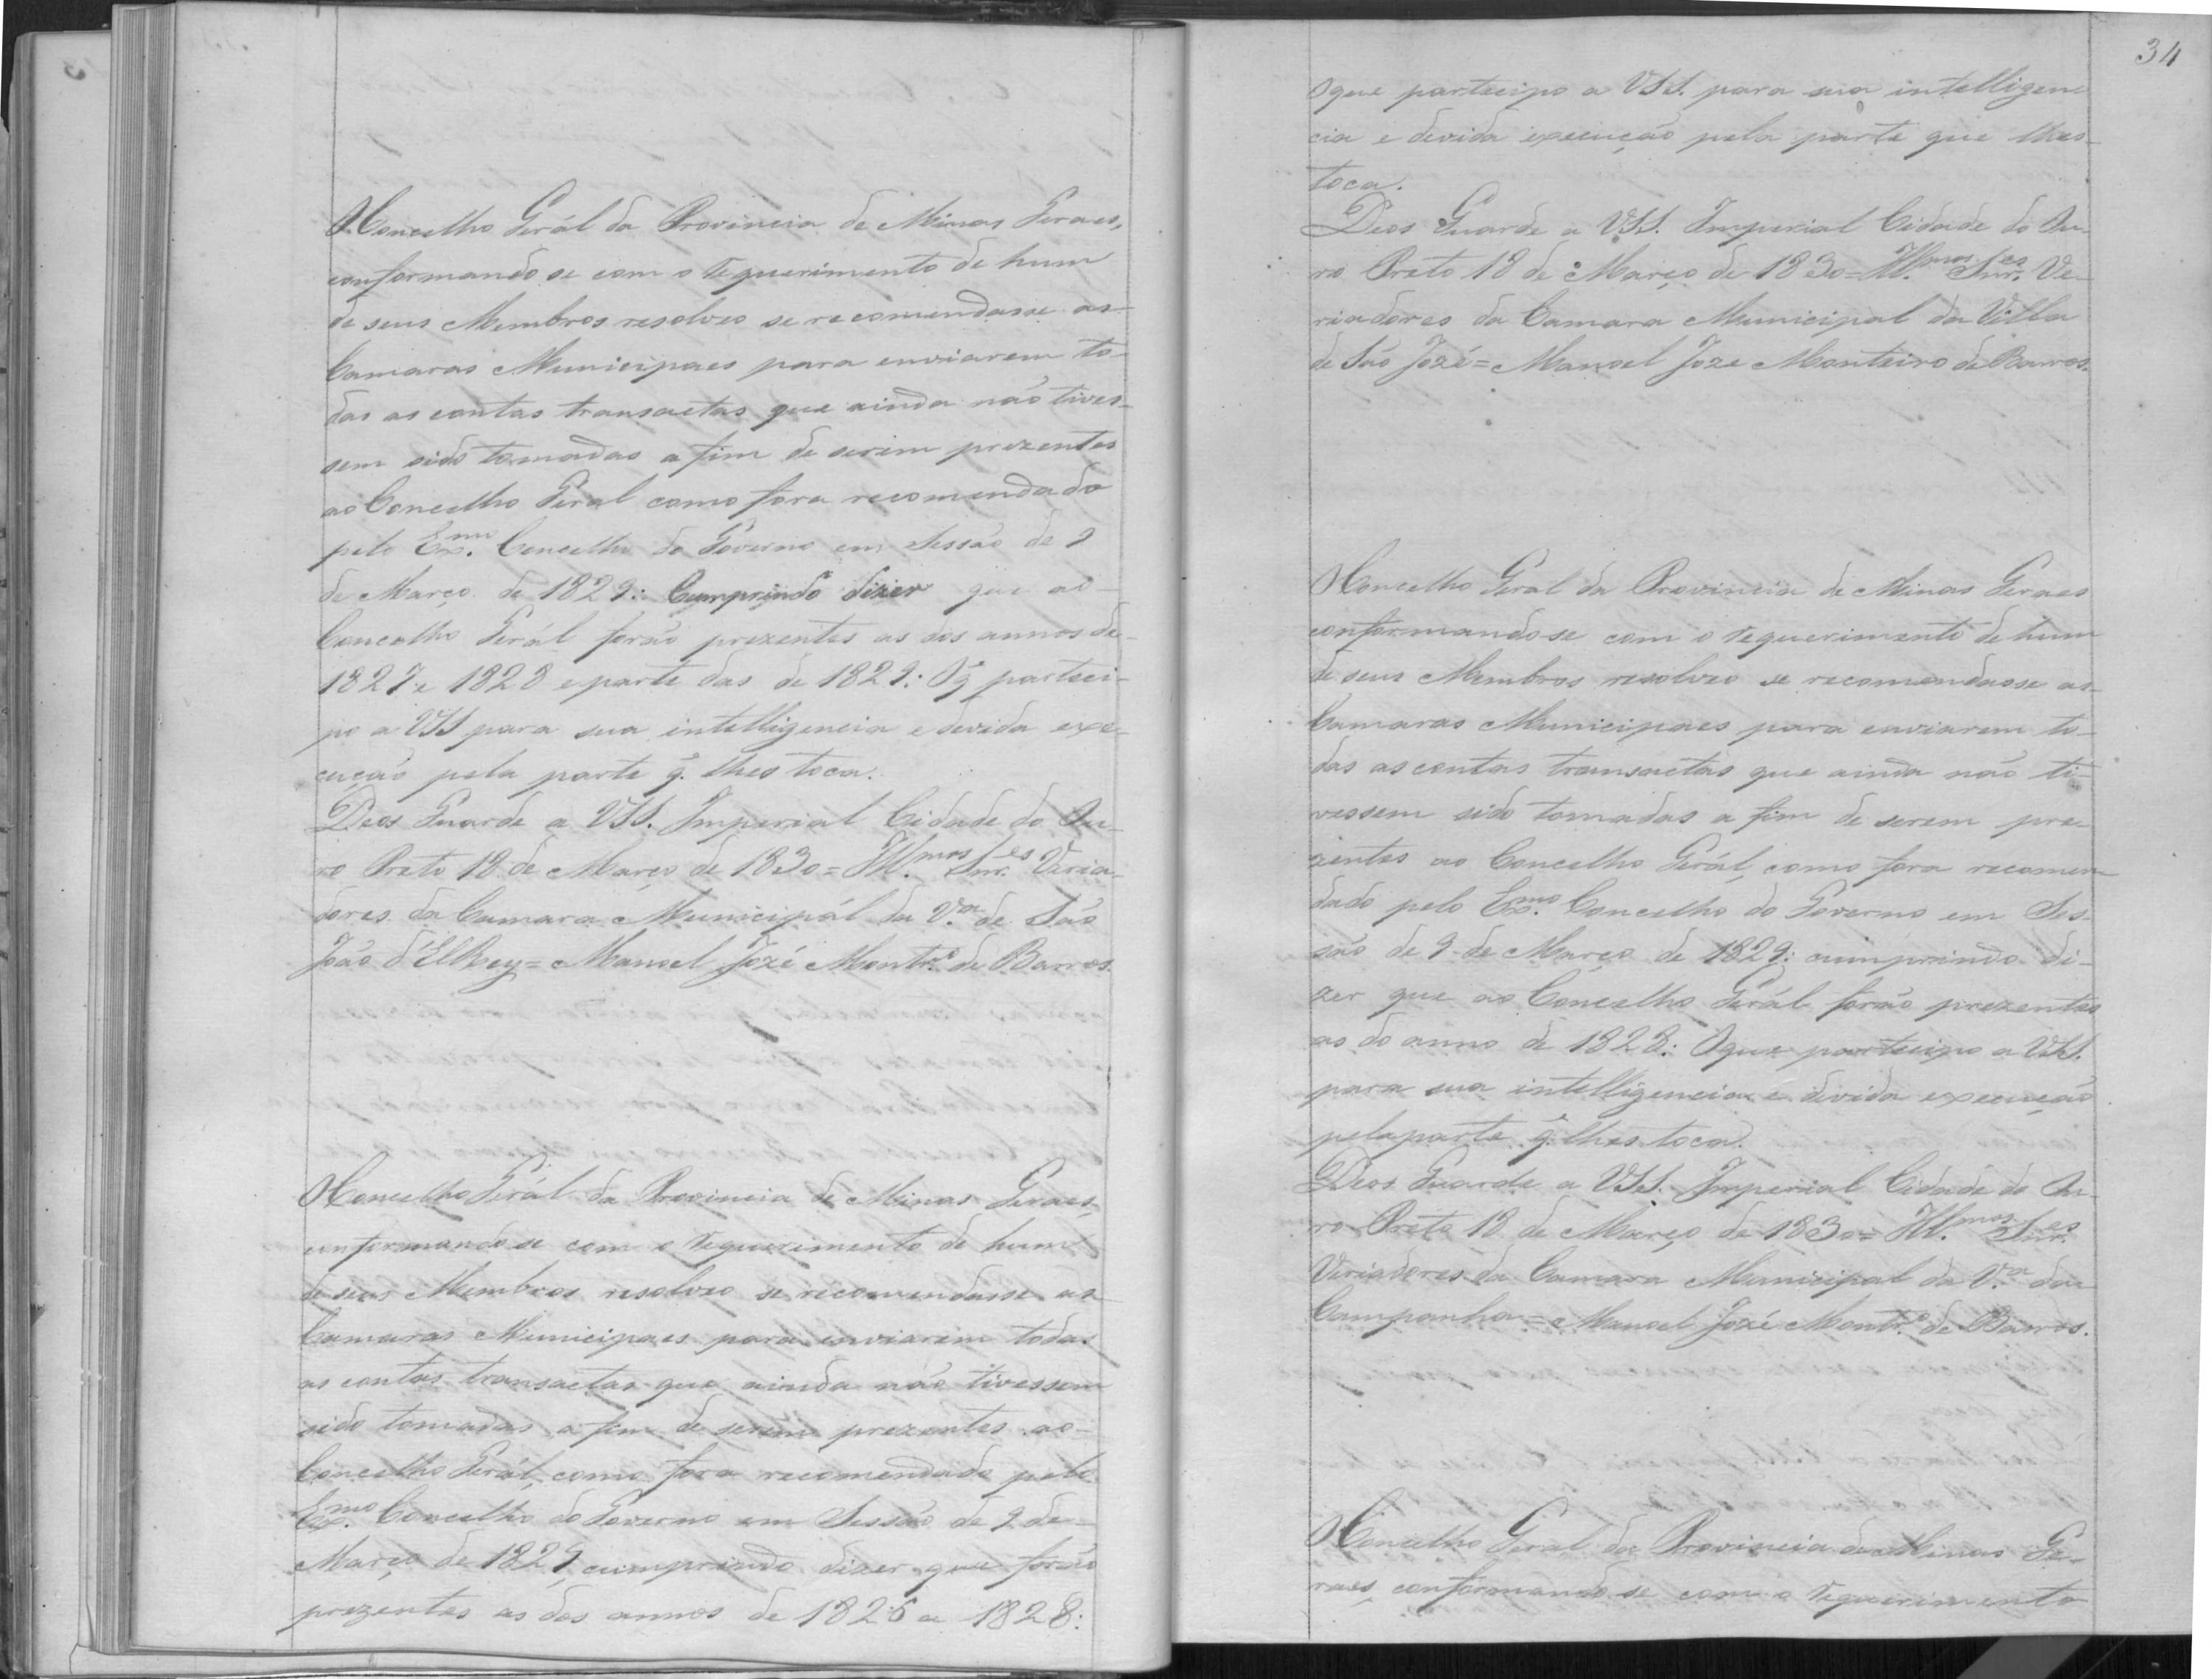 O Concelho Gerál da Provincia de Minas Geraes,
conformando se com o requerimento de hum
de seus Membros resolveo se recomendasse as
Camaras Municipaes para enviarem to-
das as contas transactas que ainda não tives-
sem sido tomadas a fim de serem prezentes
ao Concelho Geral como fora recomendado
pelo Ex.mo Concelho do Governo em Sessão de 9
de Março de 1829: Cumprindo dizer que ao
Concelho Gerál forão prezentes as dos annos de
1827 e 1828 e parte das de 1829: O q̃ partici-
po a VSS para sua intelligencia e devida exe-
cução pela parte q̃ lhes toca.
Deos Guarde a VSS. Imperial Cidade do Ou-
ro Preto 18 de Março de 1830 = Ill.mos Snr.es Veria-
dores da Camara Municipál da V.a de São
João d'ElRey = Manoel Jozé Montr.o de Barros.
O Concelho Gerál da Provincia de Minas Geraes,
conformando se com o requerimento de hum
de seus Membros resolveo se recomendasse as
Camaras Municipaes para enviarem todas
as contas transactas que ainda não tivessem
sido tomadas a fim de serem prezentes ao
Concelho Gerál, como fora recomendado pelo
Ex.mo Concelho do Governo em Sessão de 9 de
Março de 1829, cumprindo dizer que forão
prezentes as dos annos de 1826 a 1828:
34
O que participo a VSS. para sua intelligen
cia e devida execução pela parte que lhes
toca.
Deos Guarde a VSS. Imperial Cidade do Ou-
ro Preto 18 de Março de 1830 = Ill.mos Snr.es Ve-
riadores da Camara Municipal da Villa
de São Jozé = Manoel Joze Monteiro de Barros.
O Concelho Geral da Provincia de Minas Geraes
conformando-se com o requerimento de hum
de seus Membros resolveo se recomendasse as
Camaras Municipaes para enviarem to-
das as contas transactas que ainda não ti-
vessem sido tomadas a fim de serem pre-
zentes ao Concelho Gerál, como fora recomen
dado pelo Ex.mo Concelho do Governo em Ses-
são de 9 de Março de 1829: cumprindo di-
zer que ao Concelho Gerál forão prezentes
as do anno de 1828: O que participo a VSS.
para sua intelligencia e divida execução
pela parte q̃ lhes toca.
Deos Guarde a VSS. Imperial Cidade do Ou-
ro Preto 18 de Março de 1830 = Ill.mos Snr.es
Veriadores da Camara Municipal da V.a da
Campanha = Manoel Jozé Montr.o de Barros.
O Concelho Geral da Provincia de Minas Ge-
raes, conformando se com o requerimento